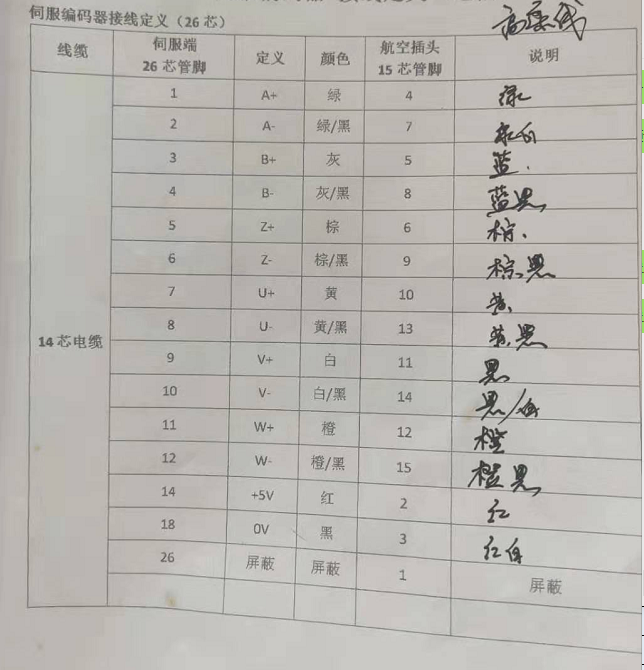 伺服编码器接线定义（26芯）
高柔线
线缆 伺服端 26芯管脚 定义 颜色 航空插头 15芯管脚 说明
14芯电缆
1 A+ 绿 4 绿
2 A- 绿/黑 7
3 B+ 灰 5 蓝.
4 B- 灰/黑 8 蓝黑
5 Z+ 棕 6 棕.
6 Z- 棕/黑 9 棕.黑
7 U+ 黄 10 黄
8 U- 黄/黑 13 黄.黑
9 V+ 白 11 黑
10 V- 白/黑 14 黑/白
11 W+ 橙 12 橙
12 W- 橙/黑 15 橙黑
14 +5V 红 2 红
18 0V 黑 3 红白
26 屏蔽 屏蔽 1 屏蔽